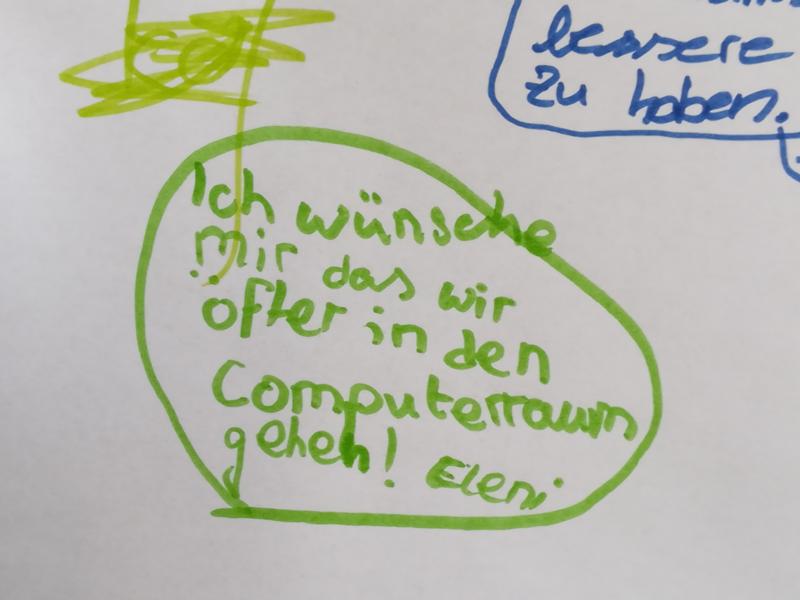 bessere
zu haben.
Ich wünsche
mir das wir
öfter in den
Computerraum
gehen! Eleni